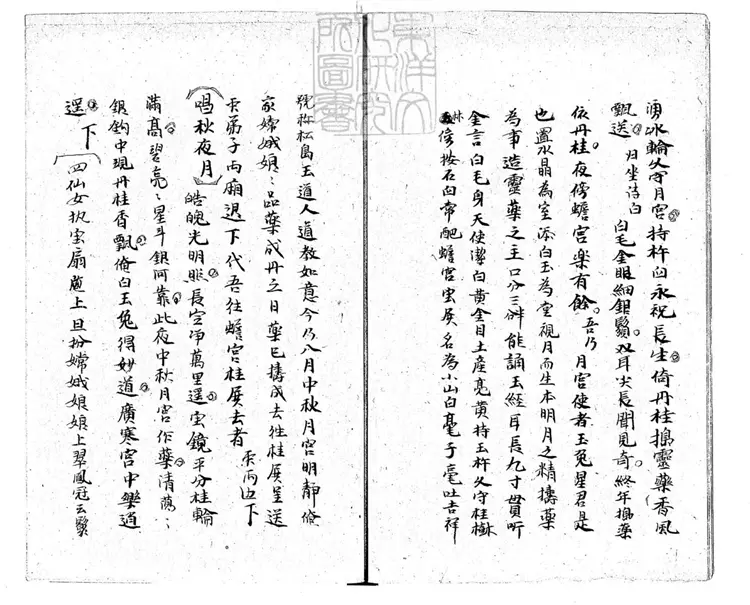 湧冰輪久守月宮持杵臼永祝長生倚丹桂搗靈藥香風
飄送 归坐詩白 白毛金眼細銀鬚双耳尖長聞見奇終年搗藥
依丹桂夜傍蟾宮楽有餘 吾乃月宮使者玉兎星君是
也置水晶為室添白玉為堂視月而生本明月之精擣藥
為事造靈藥之主口分三辧能誦玉經耳長九寸貫听
金言白毛身天使潔白黄金目土産亮黄持玉杵久守桂樹
傍按石臼常配蟾宮宝殿名為小山白毫子毫吐吉祥
號称松島玉道人道教如意今乃八月中秋月宮明靜俺
家嫦娥娘〻品藥成丹之日藥已擣成去往桂殿呈送
衆弟子両廂退下代吾往蟾宮桂殿去者 衆両边下
唱秋夜月 皓魄光明眺長空净萬里遥宝鏡平分桂輪
滿髙碧亮〻星斗銀河靠此夜中秋月宮作藥清蕩〻
銀鈎中現丹桂香飄俺白玉兎得妙道廣寒宮中樂逍
遥 下 四仙女执宝扇遮上旦扮嫦娥娘娘上翠鳳冠云鬓
東洋文化研究所圖書